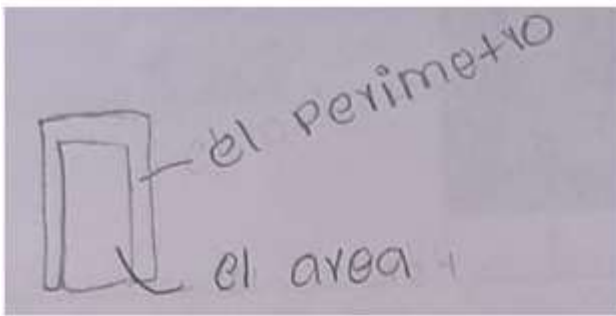 el perimetro
el area